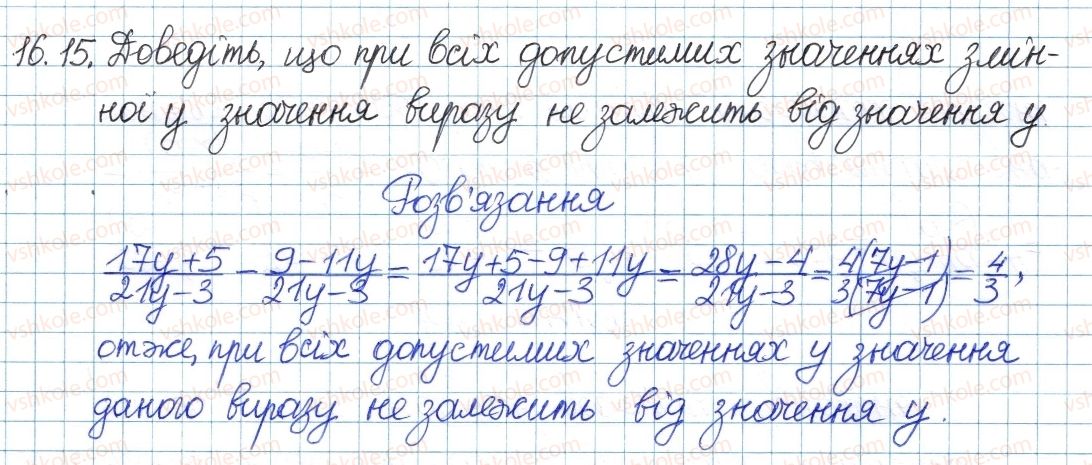 16.15. Доведіть, що при всіх допустимих значеннях змін-
ної y значення виразу не залежить від значення y.
Розв'язання
(17y+5)/(21y-3) - (9-11y)/(21y-3) = (17y+5-9+11y)/(21y-3) = (28y-4)/(21y-3) = 4(7y-1)/3(7y-1) = 4/3,
отже, при всіх допустимих значеннях y значення
даного виразу не залежить від значення y.